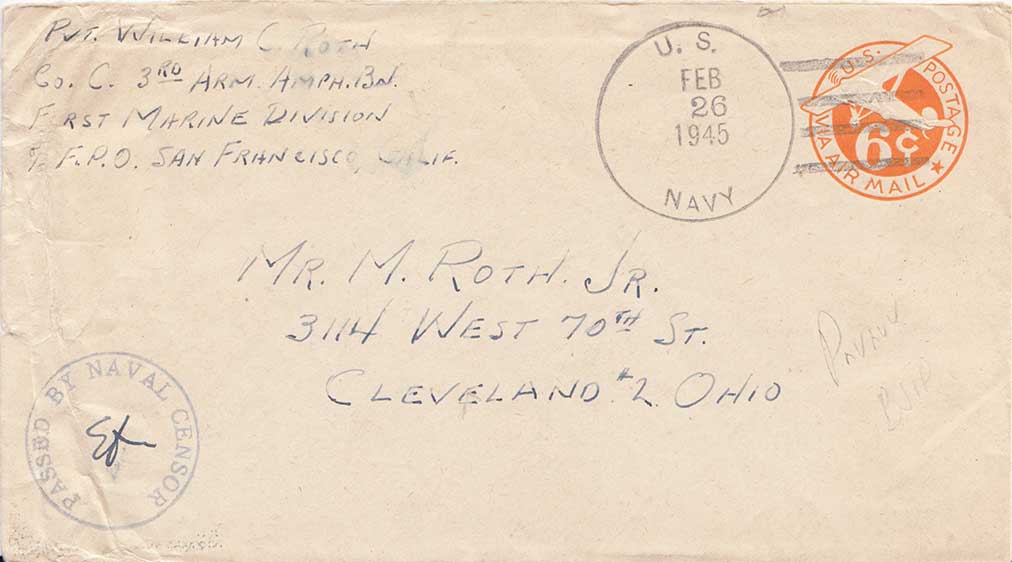 PVT. WILLIAM C. ROTH
CO. C. 3RD ARM. AMPH. BN.
FIRST MARINE DIVISION
% F.P.O. SAN FRANCISCO, CALIF.
U. S.
FEB
26
1945
NAVY
U.S. POSTAGE
6¢
VIA AIR MAIL
MR. M. ROTH. JR.
3114 WEST 70TH ST.
CLEVELAND #2 OHIO
PASSED BY NAVAL CENSOR